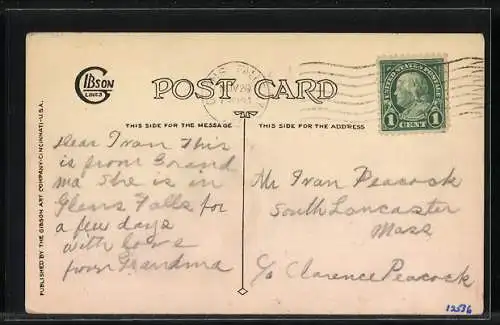 GIBSON
LINES
POST CARD
THIS SIDE FOR THE MESSAGE
THIS SIDE FOR THE ADDRESS
UNITED STATES POSTAGE
1 CENT 1
PUBLISHED BY THE GIBSON ART COMPANY-CINCINNATI-U.S.A.
Dear Ivan This
is from Grand
ma She is in
Glens Falls for
a few days
with love
from Grandma
Mr Ivan Peacock
South Lancaster
Mass
c/o Clarence Peacock
12536